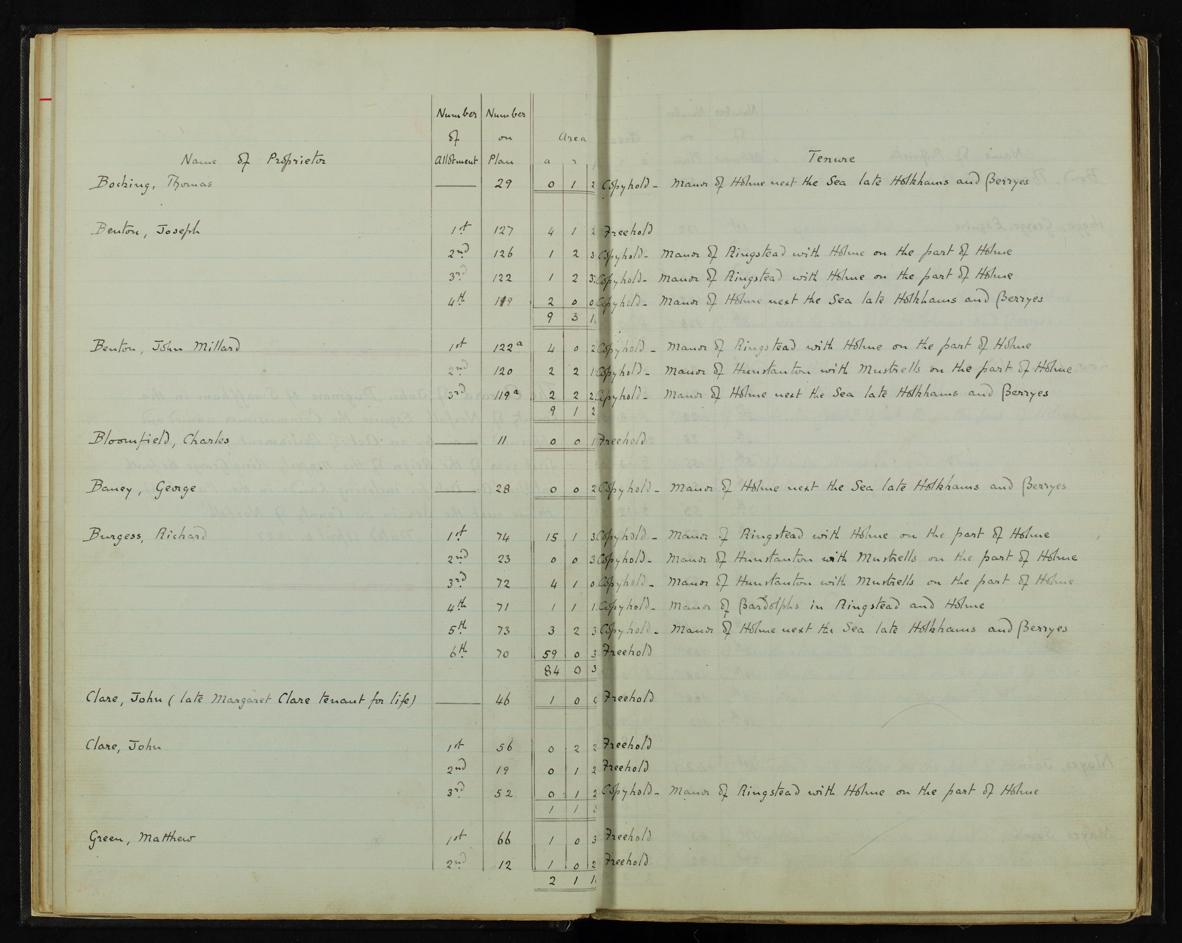 Number Number
of on Area
Name of Proprietor Allotment Plan a r Tenure
Bocking, Thomas — 29 0 1 2 Copyhold - Manor of Holme next the Sea late Holkhams and Berryes
Benton, Joseph 1st 127 4 1 2 Freehold
2nd 126 1 2 3 Copyhold - Manor of Ringstead with Holme on the part of Holme
3rd 122 1 2 3 Copyhold - Manor of Ringstead with Holme on the part of Holme
4th 119 2 0 0 Copyhold - Manor of Holme next the Sea late Holkhams and Berryes
9 3 1
Benton, John Millard 1st 122a 4 0 2 Copyhold - Manor of Ringstead with Holme on the part of Holme
2nd 120 2 2 1 Copyhold - Manor of Hunstanton with Mustrells on the part of Holme
3rd 119a 2 2 2 Copyhold - Manor of Holme next the Sea late Holkhams and Berryes
9 1 2
Bloomfield, Charles — 11 0 0 1 Freehold
Baney, George — 28 0 0 2 Copyhold - Manor of Holme next the Sea late Holkhams and Berryes
Burgess, Richard 1st 74 15 1 3 Copyhold - Manor of Ringstead with Holme on the part of Holme
2nd 23 0 0 3 Copyhold - Manor of Hunstanton with Mustrells on the part of Holme
3rd 72 4 1 0 Copyhold - Manor of Hunstanton with Mustrells on the part of Holme
4th 71 1 1 1 Copyhold - Manor of Bardolphs in Ringstead and Holme
5th 73 3 2 3 Copyhold - Manor of Holme next the Sea late Holkhams and Berryes
6th 70 59 0 3 Freehold
84 0 3
Clare, John (late Margaret Clare tenant for life) — 46 1 0 0 Freehold
Clare, John 1st 56 0 2 2 Freehold
2nd 19 0 1 2 Freehold
3rd 52 0 1 2 Copyhold - Manor of Ringstead with Holme on the part of Holme
1 1
Green, Matthew 1st 66 1 0 3 Freehold
2nd 12 1 0 2 Freehold
2 1 1